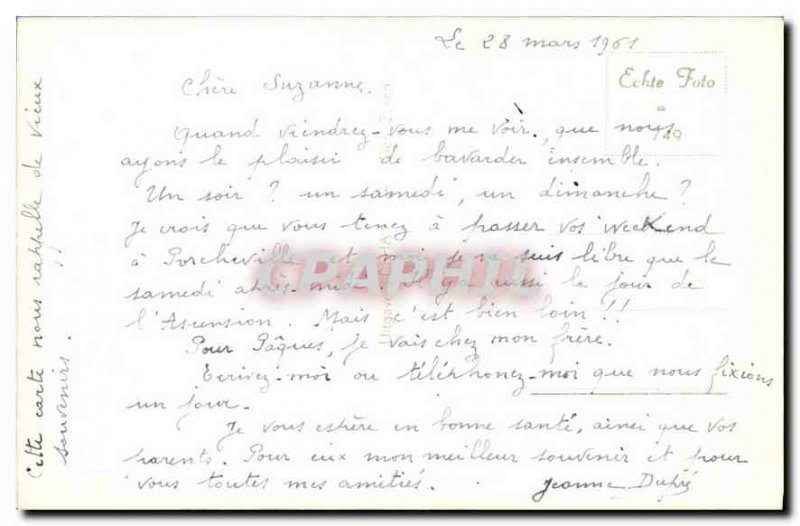 Le 28 mars 1961
Echte Foto
Chère Suzanne.
Quand viendrez-vous me voir, que nous
149
ayons le plaisir de bavarder ensemble.
Un soir ? un samedi, un dimanche ?
Je crois que vous tenez à passer vos weeKend
à Porcheville et moi je ne suis libre que le
samedi après-midi. il y a aussi le jour de
l'Ascension. Mais c'est bien loin !!
Pour Pâques, je vais chez mon frère.
Ecrivez-moi ou téléphonez-moi que nous fixions
un jour.
Je vous espère en bonne santé, ainsi que vos
parents. Pour eux mon meilleur souvenir et pour
vous toutes mes amitiés. Jeanne
Cette carte nous rappelle de vieux
souvenirs. !!